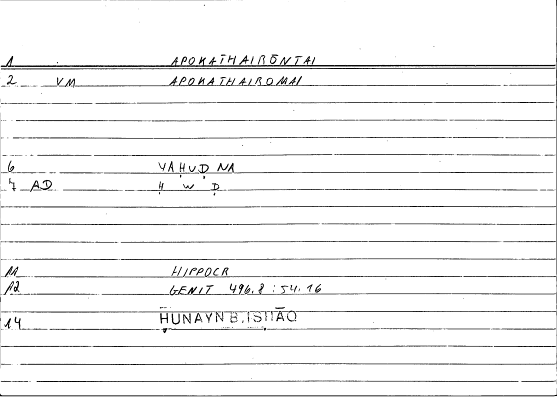 1 APOKATHAIRŌNTAI
2 VM APOKATHAIROMAI
6 YAḤUḌNA
7 AD Ḥ W Ḍ
11 HIPPOCR
12 GENIT 496.8 : 54.16
14 ḤUNAYN B. ISḤĀQ